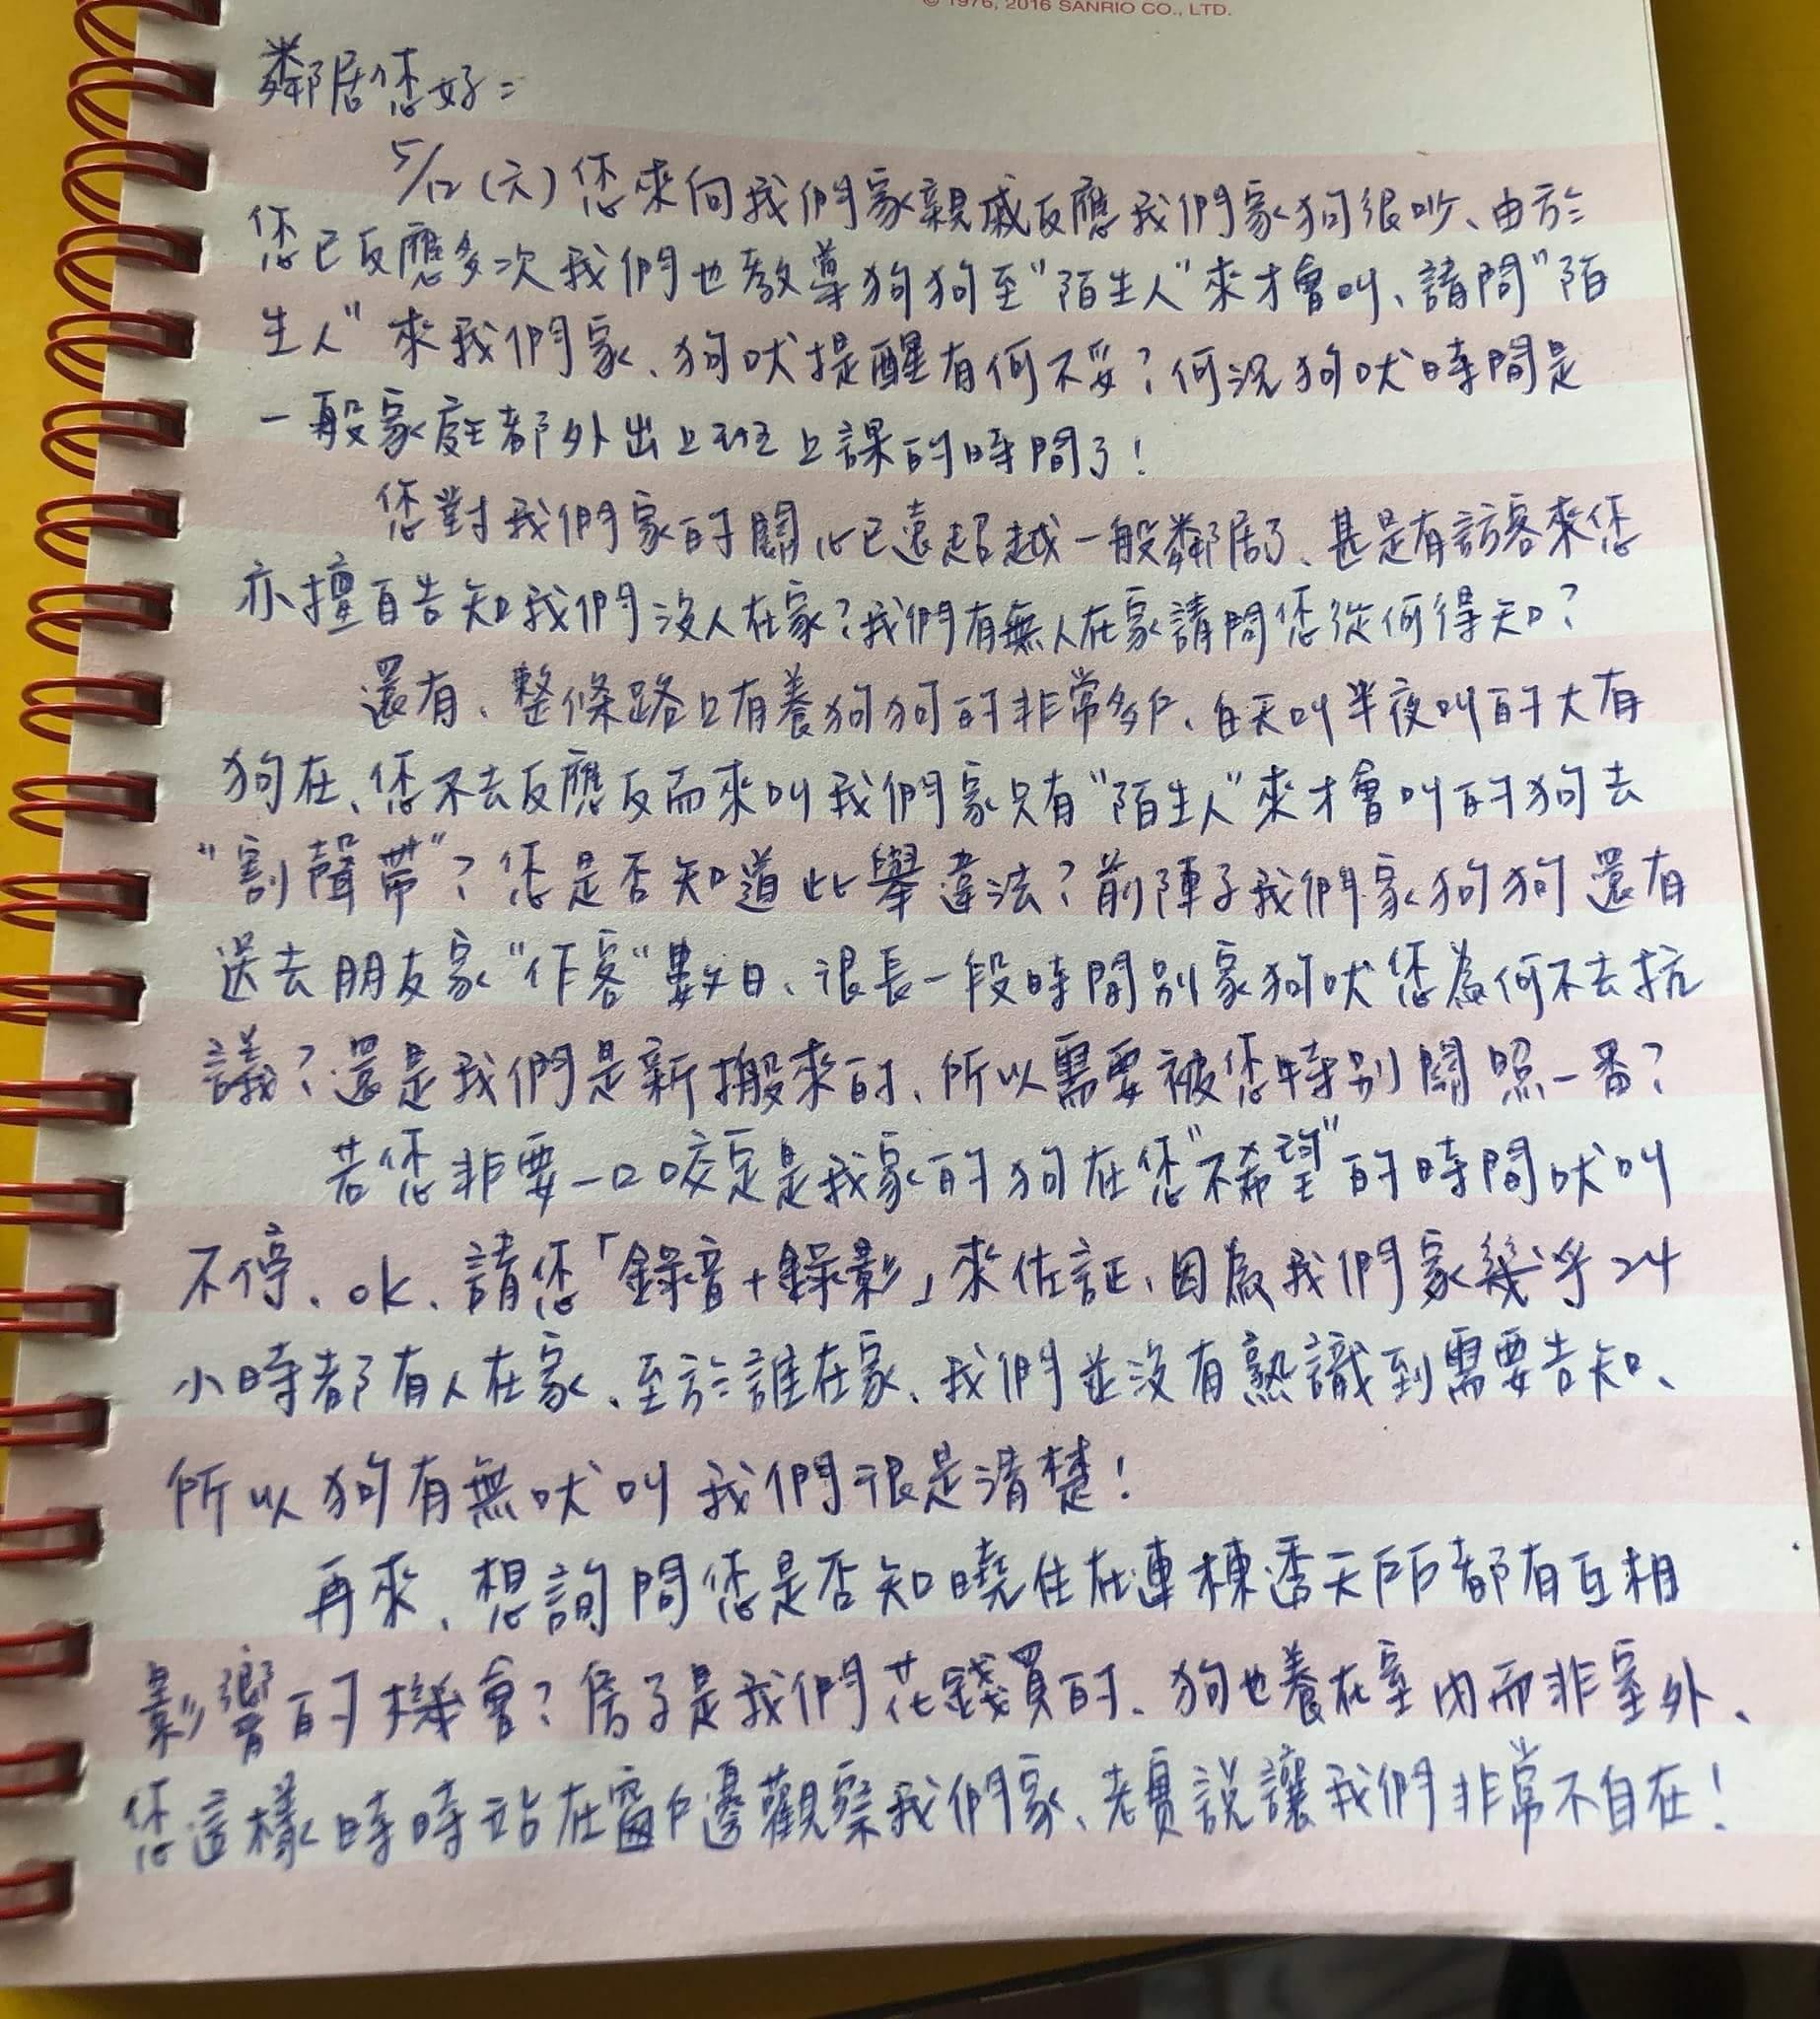 © 1976, 2016 SANRIO CO., LTD.
鄰居您好:
5/12(六)您來向我們家親戚反應我們家狗很吵、由於
您已反應多次我們也教導狗狗至"陌生人"來才會叫、請問"陌
生人"來我們家、狗吠提醒有何不妥?何況狗吠時間是
一般家庭都外出上班上課的時間了!
您對我們家的關心已遠超越一般鄰居了、甚是有訪客來您
亦擅自告知我們沒人在家?我們有無人在家請問您從何得知?
還有、整條路口有養狗狗的非常多戶、每天叫半夜叫的大有
狗在、您不去反應反而來叫我們家只有"陌生人"來才會叫的狗去
"割聲帶"?您是否知道此舉違法?前陣子我們家狗狗還有
送去朋友家"作客"數日、很長一段時間別家狗吠您為何不去抗
議?還是我們是新搬來的、所以需要被您特別關照一番?
若您非要一口咬定是我家的狗在您"不希望"的時間吠叫
不停、ok、請您「錄音+錄影」來佐証、因為我們家幾乎24
小時都有人在家、至於誰在家、我們並沒有熟識到需要告知、
所以狗有無吠叫我們很是清楚!
再來、想詢問您是否知曉住在連棟透天戶戶都有互相
影響的機會?房子是我們花錢買的、狗也養在室內而非室外、
您這樣時時站在窗戶邊觀察我們家、老實說讓我們非常不自在!